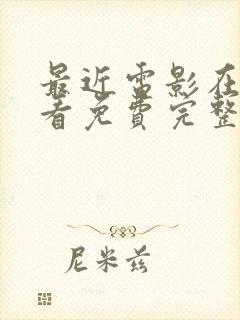 最近雷影在
看免费完整
尼米兹